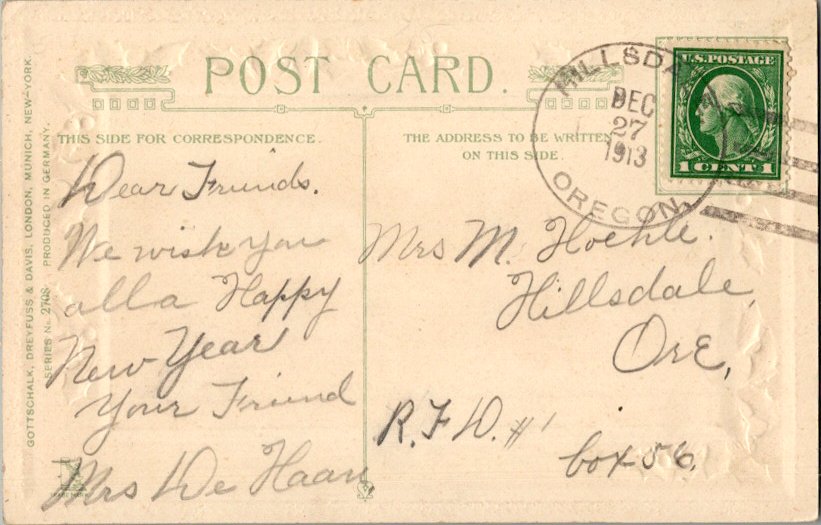 POST CARD.
THIS SIDE FOR CORRESPONDENCE.
THE ADDRESS TO BE WRITTEN
ON THIS SIDE.
HILLSDALE
DEC
27
1913
OREGON.
U.S. POSTAGE
1 CENT 1
Dear Friends.
We wish you
all a Happy
New Year
Your Friend
Mrs De Haan
Mrs M. Hoehle.
Hillsdale,
Ore,
R.F.D. #1
box 56.
GOTTSCHALK, DREYFUSS & DAVIS, LONDON, MUNICH, NEW-YORK.
SERIES No 2708 PRODUCED IN GERMANY.
TRADE MARK